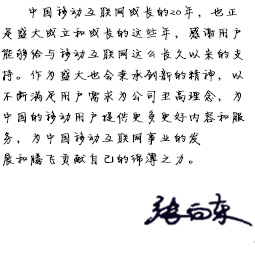 中国移动互联网成长的20年，也正
是盛大成立和成长的这些年，感谢用户
能够给与移动互联网这么长久以来的支
持。作为盛大也会秉承创新的精神，以
不断满足用户需求为公司至高理念，为
中国的移动用户提供更多更好内容和服
务，为中国移动互联网事业的发
展和腾飞贡献自己的绵薄之力。